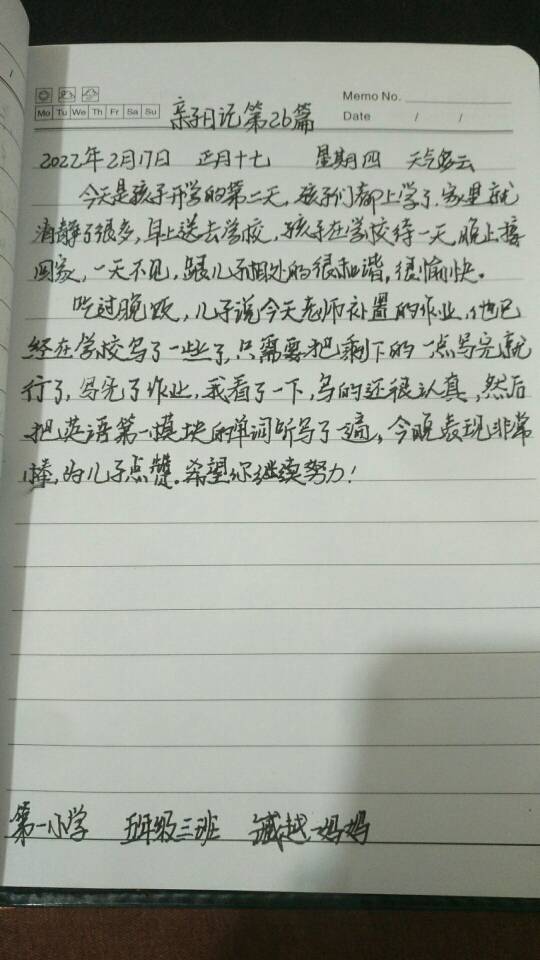 Memo No.
Mo Tu We Th Fr Sa Su
Date / /
亲子日记第26篇
2022年2月17日 正月十七 星期四 天气多云
今天是孩子开学的第二天,孩子们都上学了.家里就
清静了很多,早上送去学校,孩子在学校待一天,晚上接
回家,一天不见,跟儿子相处的很和谐,很愉快。
吃过晚饭,儿子说今天老师布置的作业,他已
经在学校写了一些了,只需要把剩下的一点写完就
行了,写完了作业,我看了一下,写的还很认真,然后
把英语第一模块的单词听写了一遍,今晚表现非常
棒,为儿子点赞.希望你继续努力!
第一小学 五年级三班 臧越妈妈